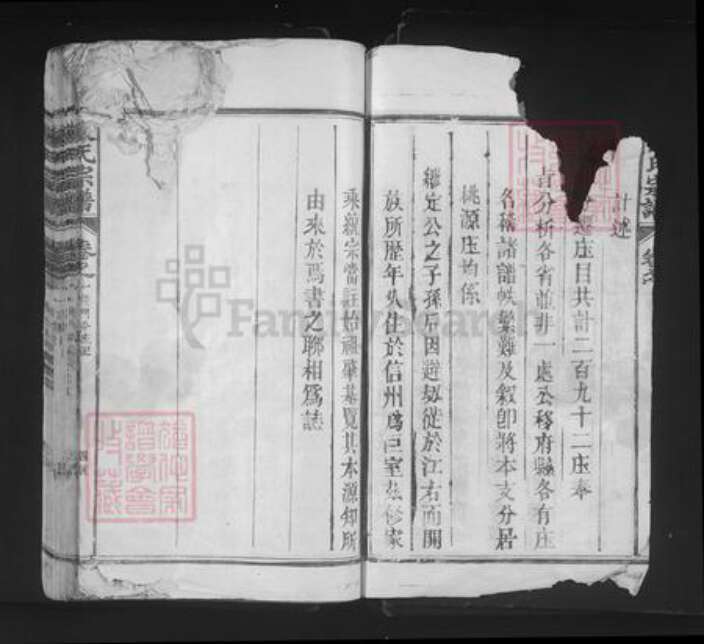 氏宗譜 卷之
計述
遷庄目共計二百九十二庄奉
旨分析各省並非一處公移府縣各有庄
名稱諸譜帙繁難及敘卽將本支分居
桃源庄均係
繼定公之子孫后因避 從於江右而開
族所歷年久住於信州爲巨室玆修家
乘親宗當註始禰墓覽其本源知所
由來於焉書之聊相爲誌
氏宗譜 卷之
FamilySearch